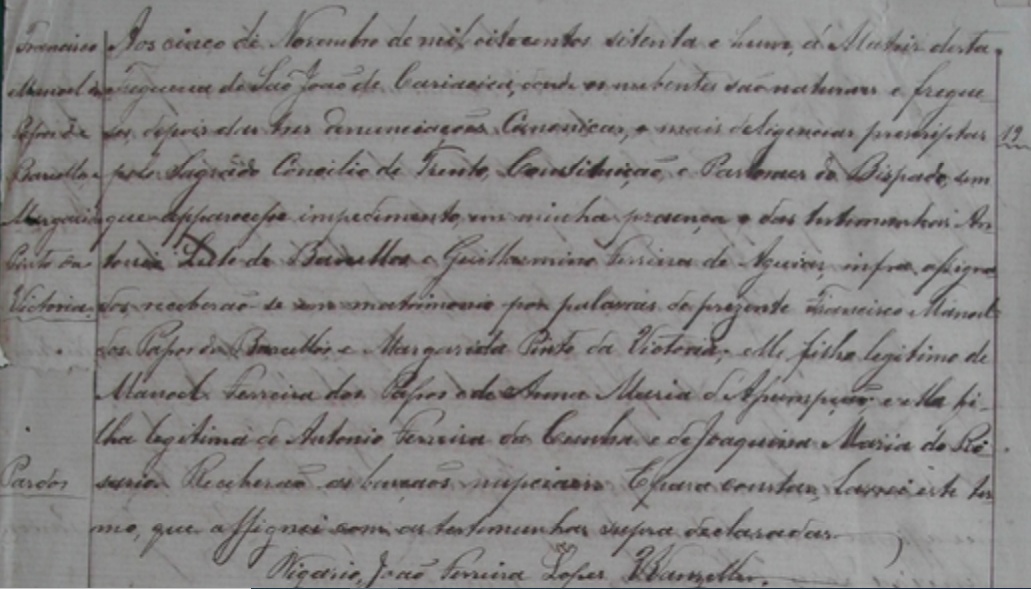 Francisco
Manoel
Passos de
Barcellos e
Margarida
Pinto da
Victoria.
Pardos
Aos cinco de Novembro de mil oitocentos setenta e hum, á Matriz desta
Freguesia de São João de Cariacica, donde os nubentes são naturaes e fregue-
ses, depois das tres denunciações Canonicas, e mais deligencias prescriptas
pelo Sagrado Concilio de Trento, Constituição, e Pastoraes do Bispado, sem
que apparecesse impedimento, em minha presença e das testemunhas An-
tonio de Barcellos e Guilhermino Ferreira de Aguiar, infra assigna-
dos, receberão-se em matrimonio por palavras de prezente Francisco Manoel
dos Passos de Barcellos e Margarida Pinto da Victoria; elle filho legitimo de
Manoel Ferreira dos Passos e de Anna Maria d'Assumpção, e ella fi-
lha legitima de Antonio Ferreira da Cunha e de Joaquina Maria do Ro-
sario. Receberão as bençãos nupciaes. E para constar, lavrei este ter-
mo, que assignei com as testemunhas supra declaradas.
Vigario, João Ferreira Lopes Wanzeller.
19